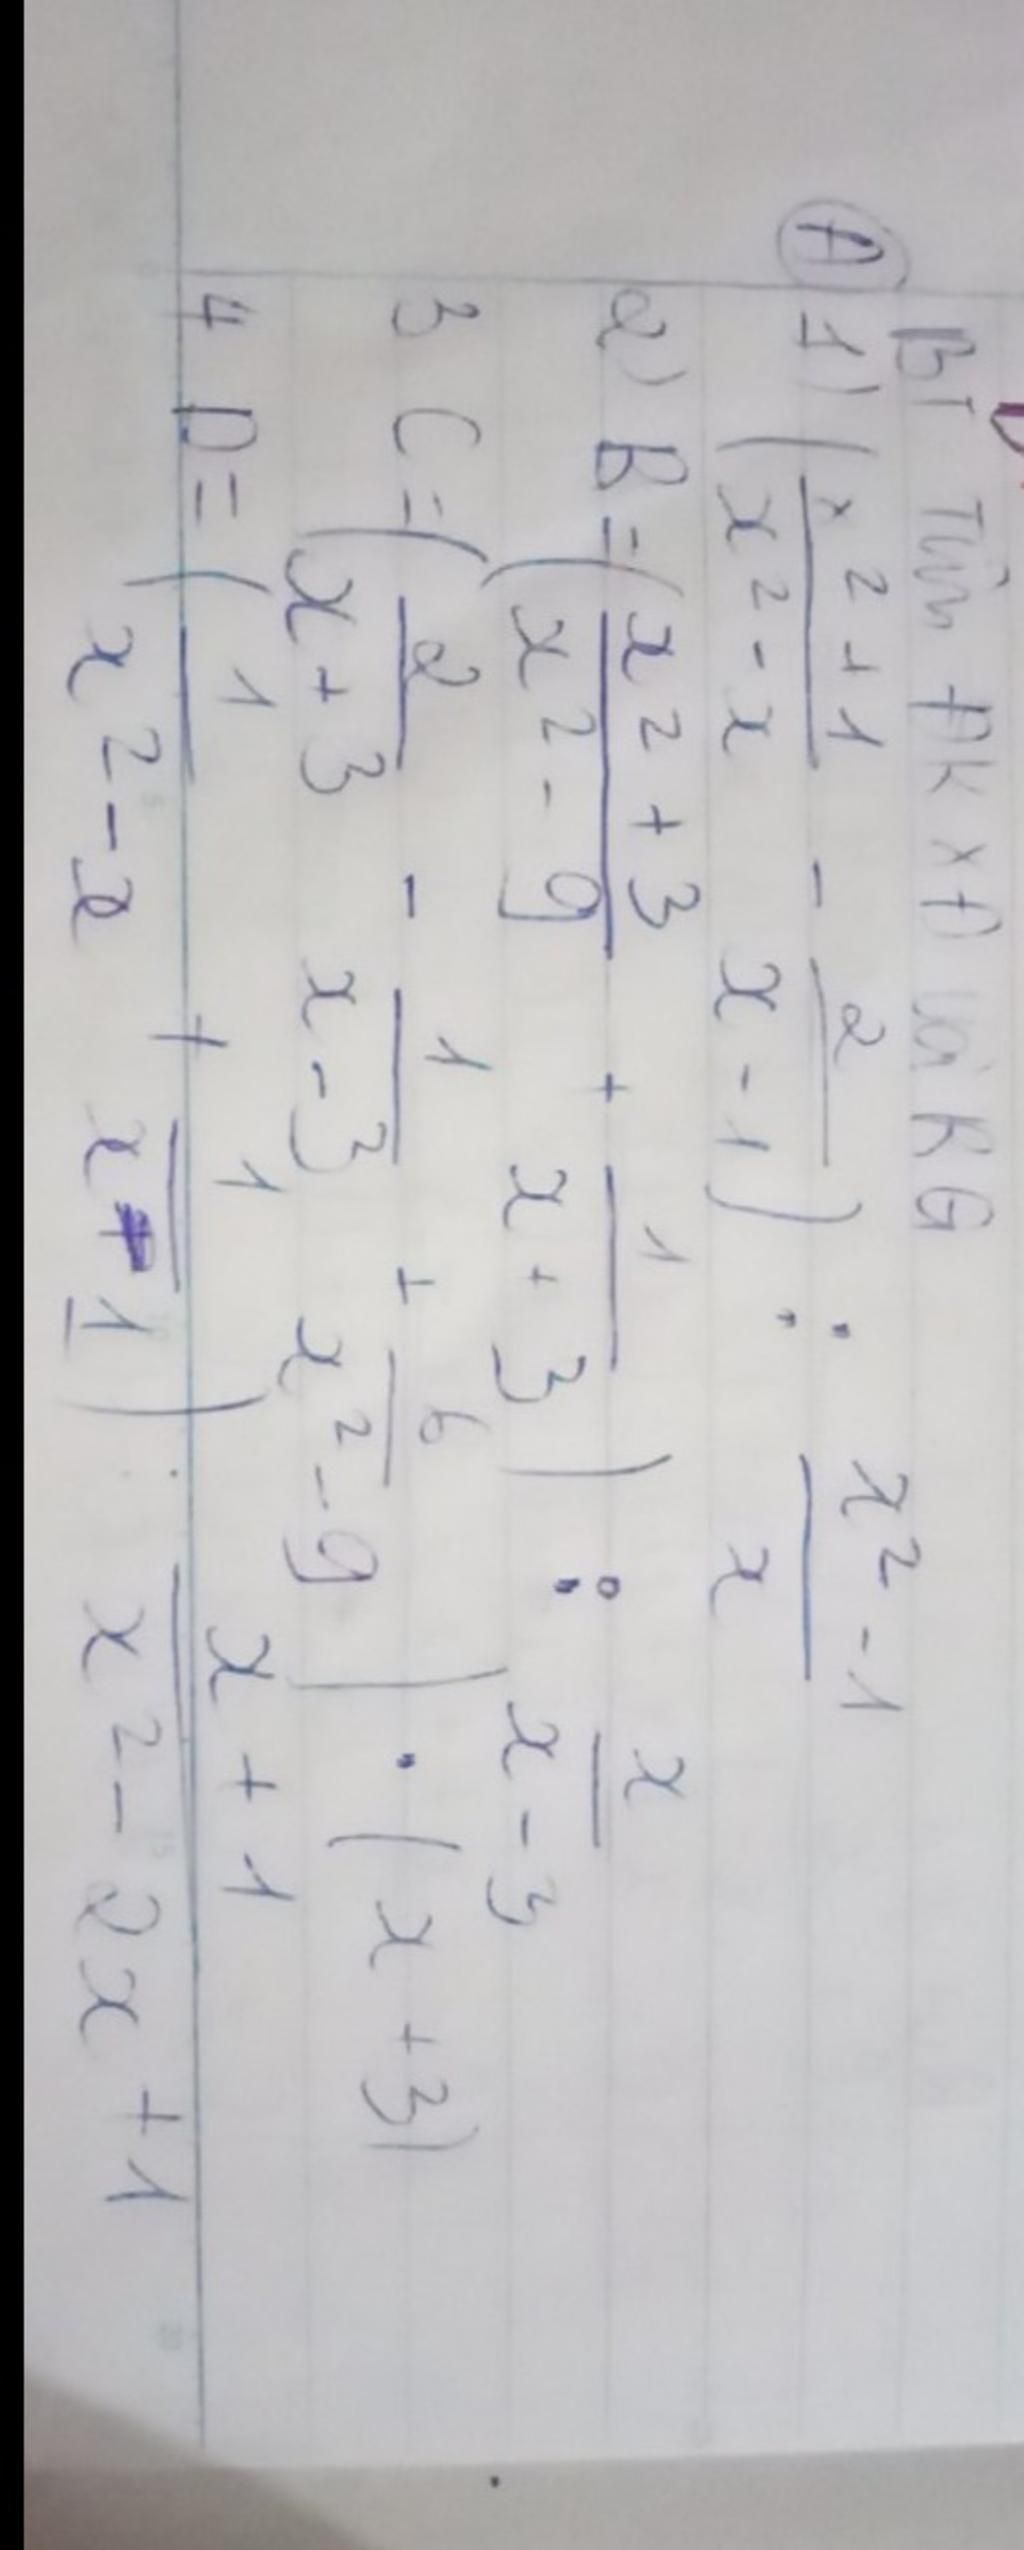 BT Tìm ĐK XĐ và RG
A 1) (x²+1/x²-x - 2/x-1) : x²-1/x
2) B = (x²+3/x²-9 + 1/x+3) : x/x-3
3 C = (2/x+3 - 1/x-3 + 6/x²-9) . (x+3)
4 D = (1/x²-x + 1/x-1) : x+1/x²-2x+1